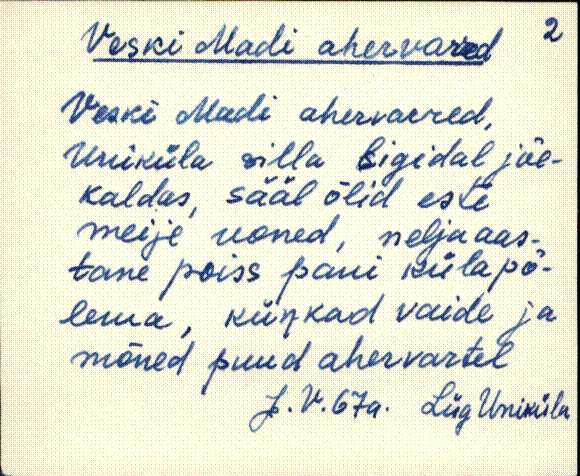 2
Veski Madi ahervared
Veski Madi ahervarred,
Uniküla silla ligidal jõe-
kaldas, sääl õlid esti
meije uoned, neljaaas-
tane poiss pani küla põ-
lema, künkad vaide ja
mõned puud ahervartel
J. V. 67a. Lüg Uniküla